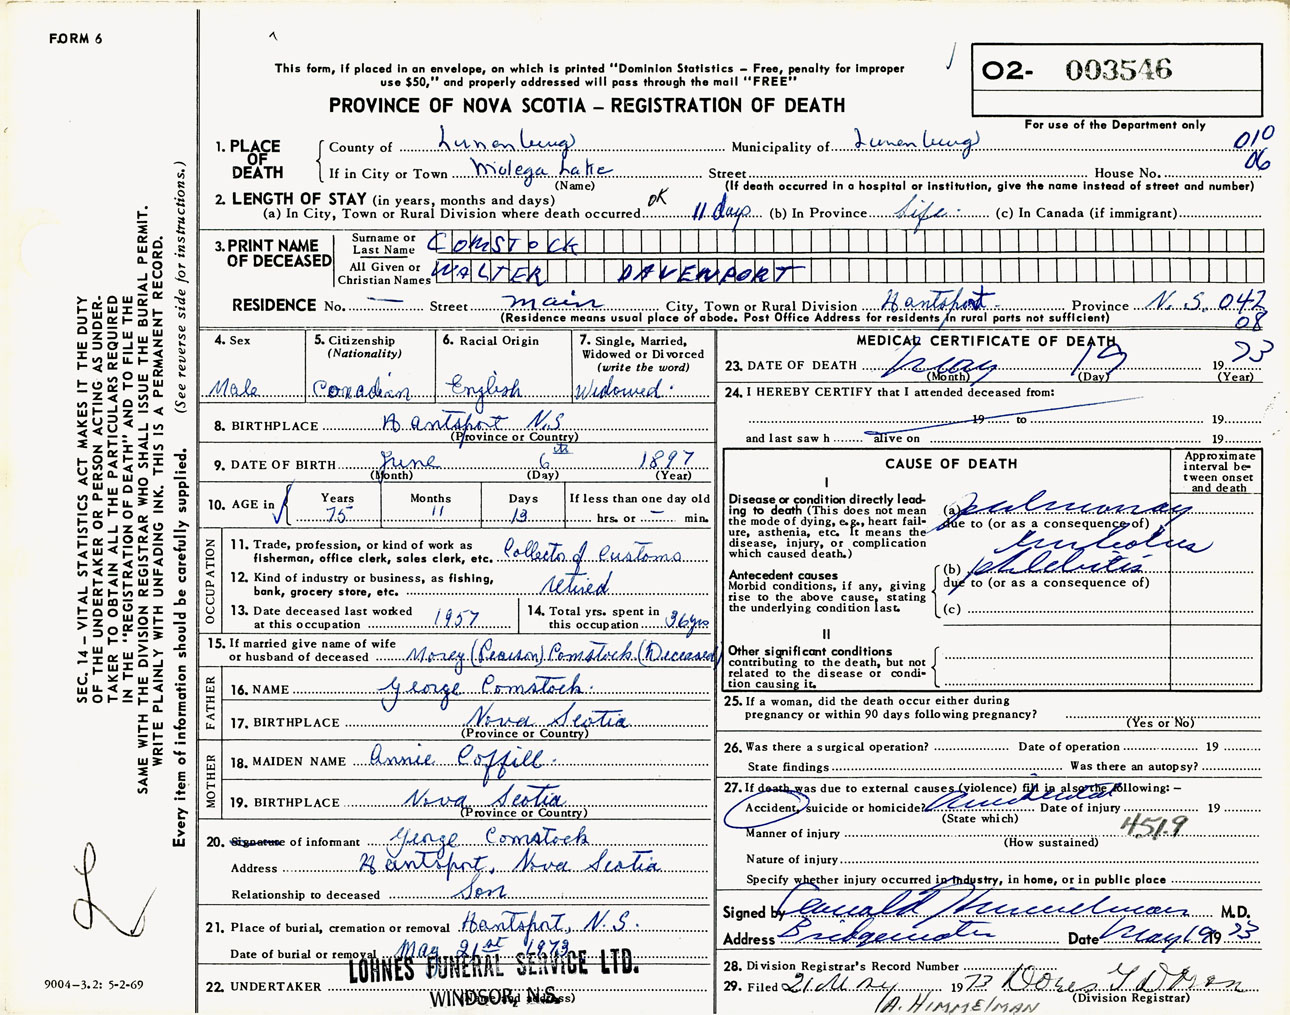 FORM 6
This form, if placed in an envelope, on which is printed "Dominion Statistics – Free, penalty for improper
use $50," and properly addressed will pass through the mail "FREE"
PROVINCE OF NOVA SCOTIA – REGISTRATION OF DEATH
02- 003546
For use of the Department only
010
06
1. PLACE OF DEATH
County of Lunenburg Municipality of Lunenburg
If in City or Town Molega Lake Street House No.
(Name) (If death occurred in a hospital or institution, give the name instead of street and number)
2. LENGTH OF STAY (in years, months and days) OK
(a) In City, Town or Rural Division where death occurred 11 days (b) In Province Life (c) In Canada (if immigrant)
3. PRINT NAME OF DECEASED
Surname or Last Name COMSTOCK
All Given or Christian Names WALTER DAVENPORT
RESIDENCE No. — Street Main City, Town or Rural Division Hantsport Province N.S. 042
(Residence means usual place of abode. Post Office Address for residents in rural parts not sufficient) 08
4. Sex
Male
5. Citizenship
(Nationality)
Canadian
6. Racial Origin
English
7. Single, Married,
Widowed or Divorced
(write the word)
Widowed
8. BIRTHPLACE Hantsport N.S
(Province or Country)
9. DATE OF BIRTH June 6th 1897
(Month) (Day) (Year)
10. AGE in Years Months Days If less than one day old
75 11 13 hrs. or — min.
OCCUPATION
11. Trade, profession, or kind of work as
fisherman, office clerk, sales clerk, etc. Collector of Customs
12. Kind of industry or business, as fishing,
bank, grocery store, etc. retired
13. Date deceased last worked
at this occupation 1957
14. Total yrs. spent in
this occupation 36 yrs
15. If married give name of wife
or husband of deceased (Pearson) Comstock (Deceased)
FATHER
16. NAME George Comstock
17. BIRTHPLACE Nova Scotia
(Province or Country)
MOTHER
18. MAIDEN NAME Annie Coffill
19. BIRTHPLACE Nova Scotia
(Province or Country)
20. Signature of informant George Comstock
Address Hantsport, Nova Scotia
Relationship to deceased Son
21. Place of burial, cremation or removal Hantsport, N.S.
Date of burial or removal May 21st 1973
22. UNDERTAKER
LOHNES FUNERAL SERVICE LTD.
WINDSOR, N.S.
(Name and address)
MEDICAL CERTIFICATE OF DEATH
23. DATE OF DEATH May 19 1973
(Month) (Day) (Year)
24. I HEREBY CERTIFY that I attended deceased from:
19 to 19
and last saw h alive on 19
CAUSE OF DEATH
Approximate
interval be-
tween onset
and death
I
Disease or condition directly lead-
ing to death (This does not mean
the mode of dying, e.g., heart fail-
ure, asthenia, etc. It means the
disease, injury, or complication
which caused death.)
(a) pulmonary
due to (or as a consequence of)
embolus
Antecedent causes
Morbid conditions, if any, giving
rise to the above cause, stating
the underlying condition last.
(b) phlebitis
due to (or as a consequence of)
(c)
II
Other significant conditions
contributing to the death, but not
related to the disease or condi-
tion causing it.
25. If a woman, did the death occur either during
pregnancy or within 90 days following pregnancy?
(Yes or No)
26. Was there a surgical operation? Date of operation 19
State findings Was there an autopsy?
27. If death was due to external causes (violence) fill in also the following: –
Accident, suicide or homicide? Accidental Date of injury 19
(State which) 451.9
Manner of injury
(How sustained)
Nature of injury
Specify whether injury occurred in industry, in home, or in public place
Signed by Donald Himmelman M.D.
Address Bridgewater Date May 19 1973
28. Division Registrar's Record Number
29. Filed 21 May 1973
(Division Registrar)
(A. HIMMELMAN
SEC. 14 – VITAL STATISTICS ACT MAKES IT THE DUTY
OF THE UNDERTAKER OR PERSON ACTING AS UNDER-
TAKER TO OBTAIN ALL THE PARTICULARS REQUIRED
IN THE "REGISTRATION OF DEATH" AND TO FILE THE
SAME WITH THE DIVISION REGISTRAR WHO SHALL ISSUE THE BURIAL PERMIT.
WRITE PLAINLY WITH UNFADING INK. THIS IS A PERMANENT RECORD.
Every item of information should be carefully supplied. (See reverse side for instructions.)
9004-3.2: 5-2-69